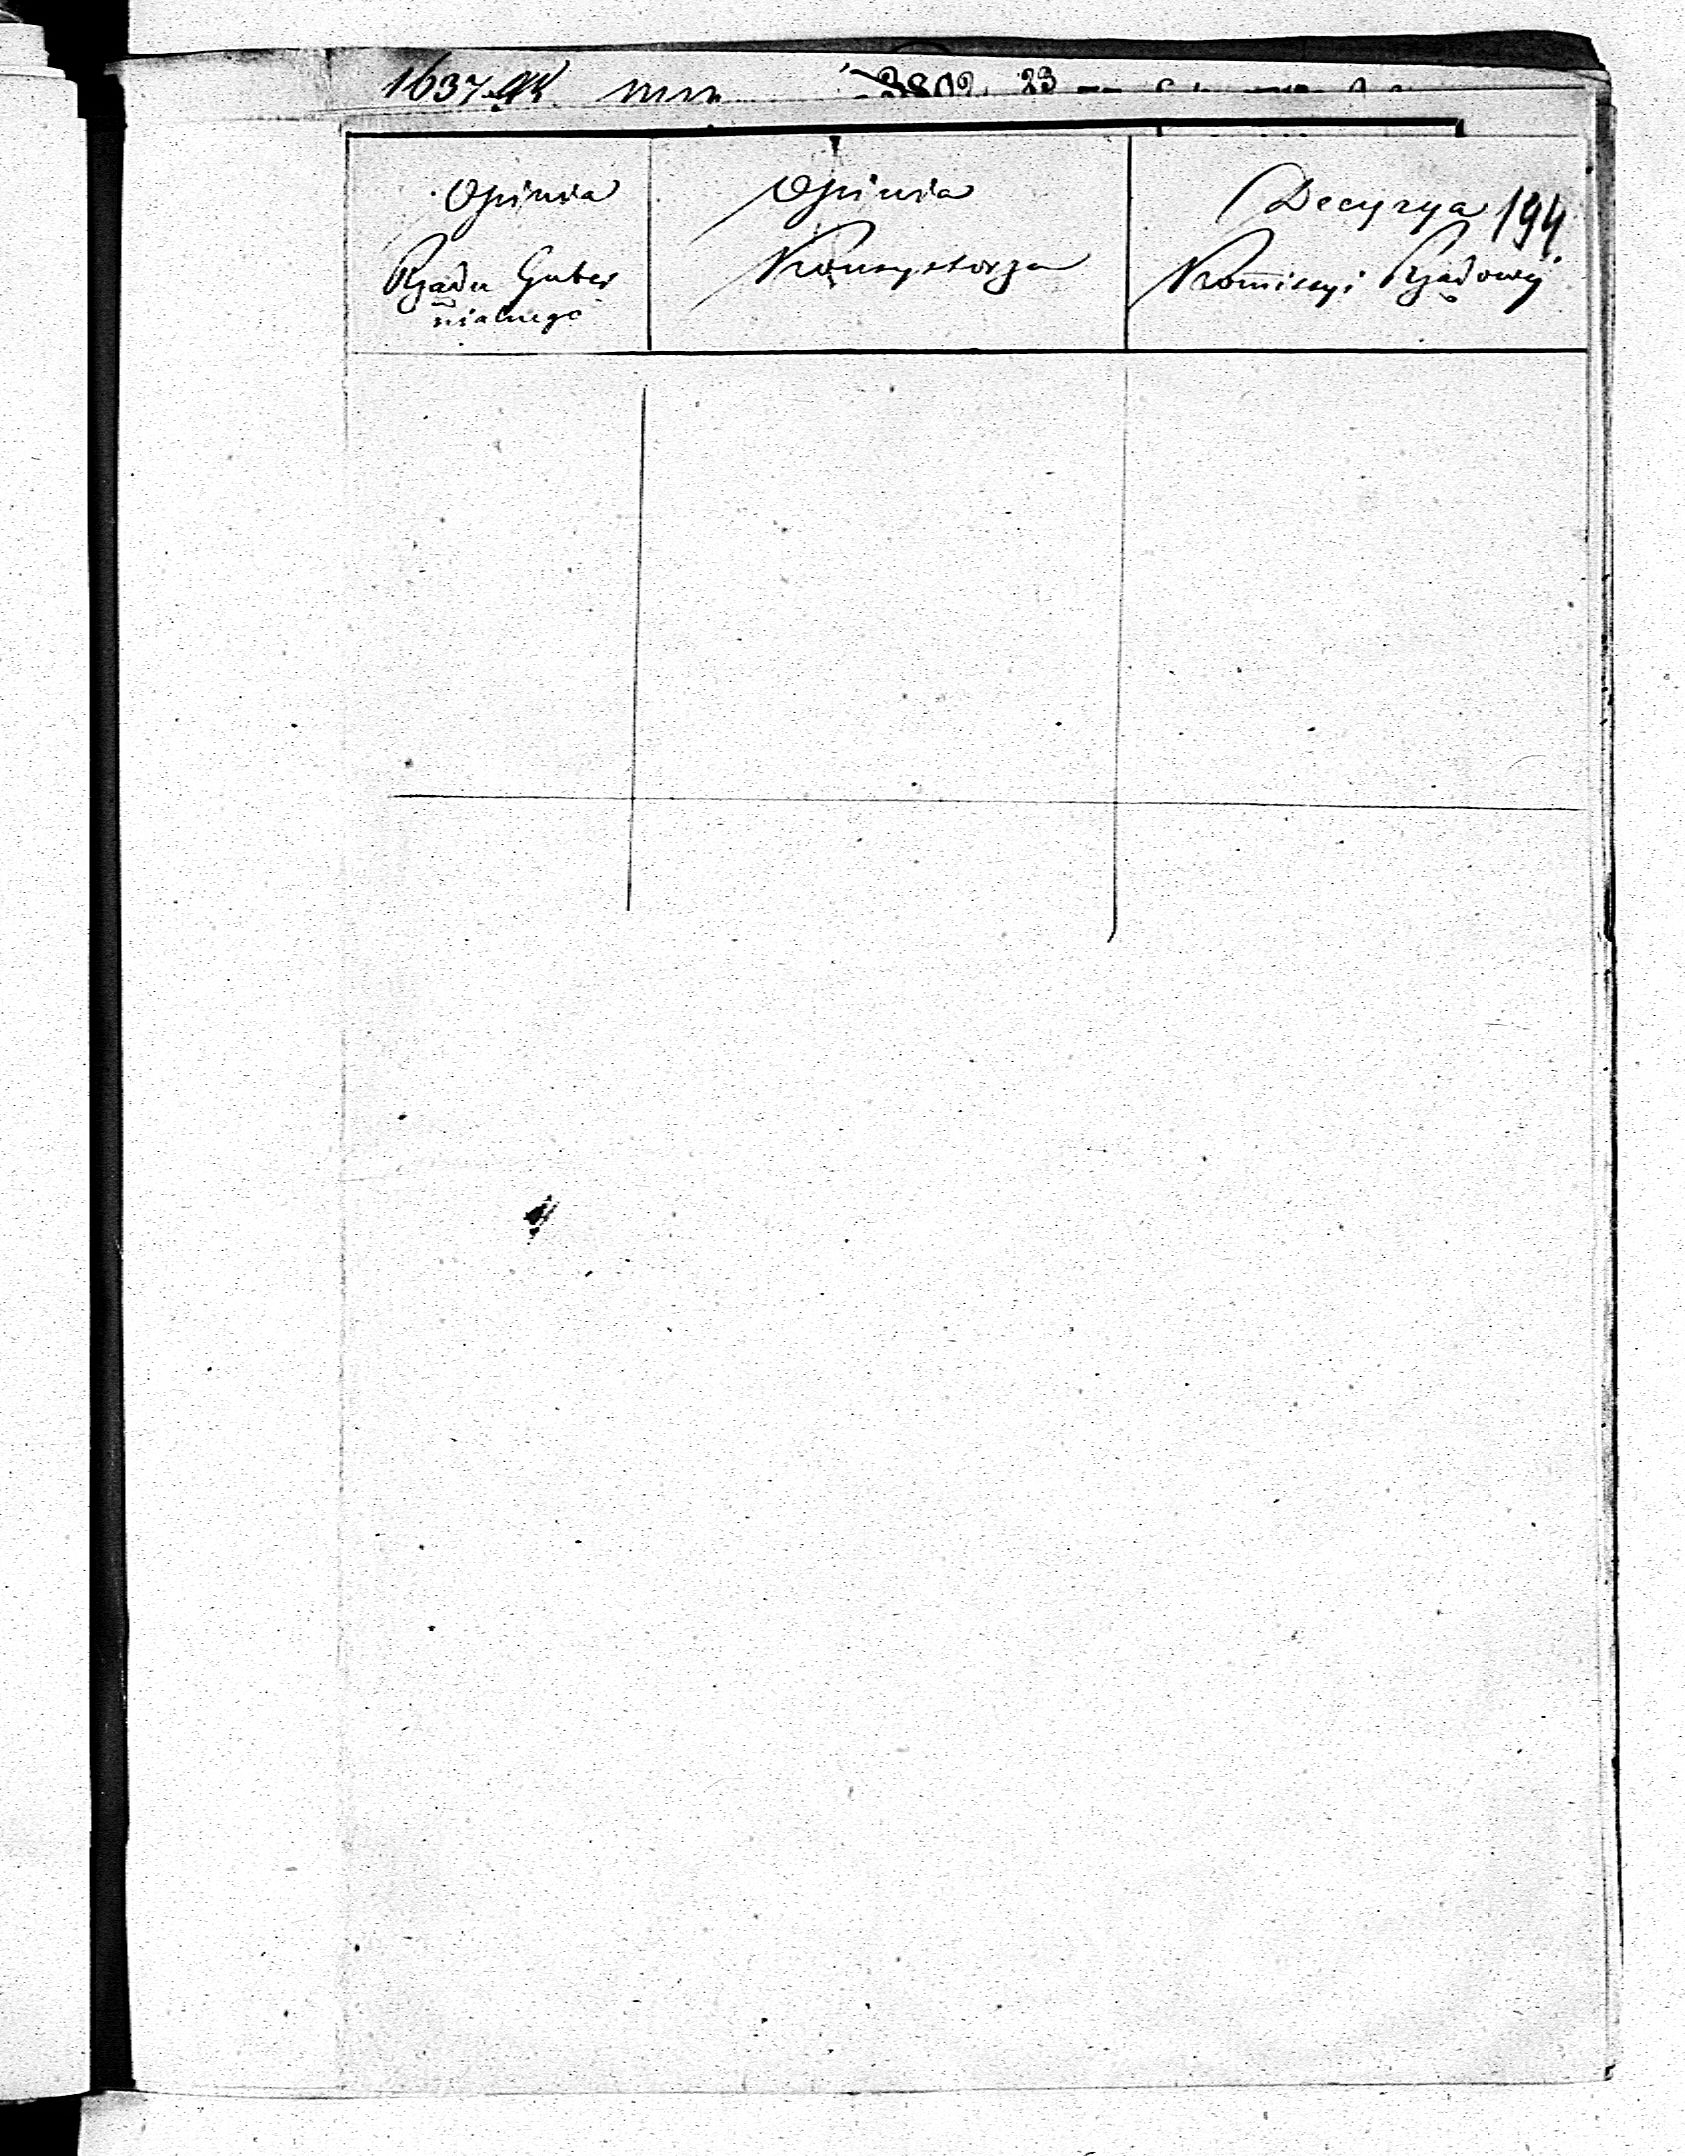 1637
3802 23
194
Opinia
Rządu Guber
nialnego
Opinia
Konsystorza
Decyzya
Komissyi Rządowéj